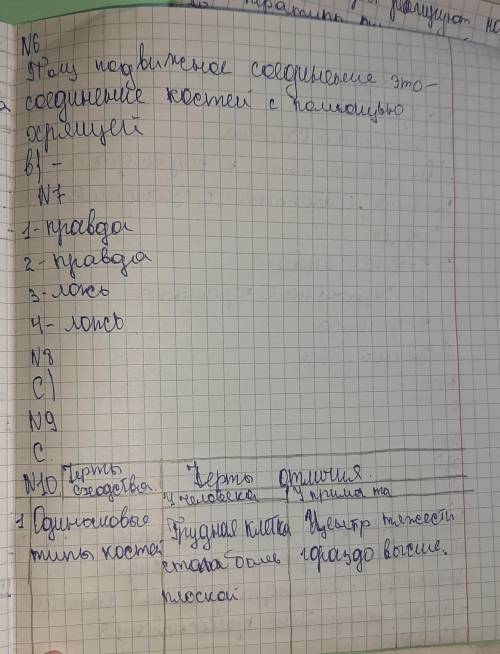 N6
Полу подвижное соединение это-
соединение костей с помощью
хрящей
в) -
N7
1- правда
2- правда
3- ложь
4- ложь
N8
С)
N9
С.
N10 Черты сходства. Черты отличия.
У человека У примата
1 Одинаковые Грудная клетка Центр тяжести
типы костей стала более гораздо выше.
плоской